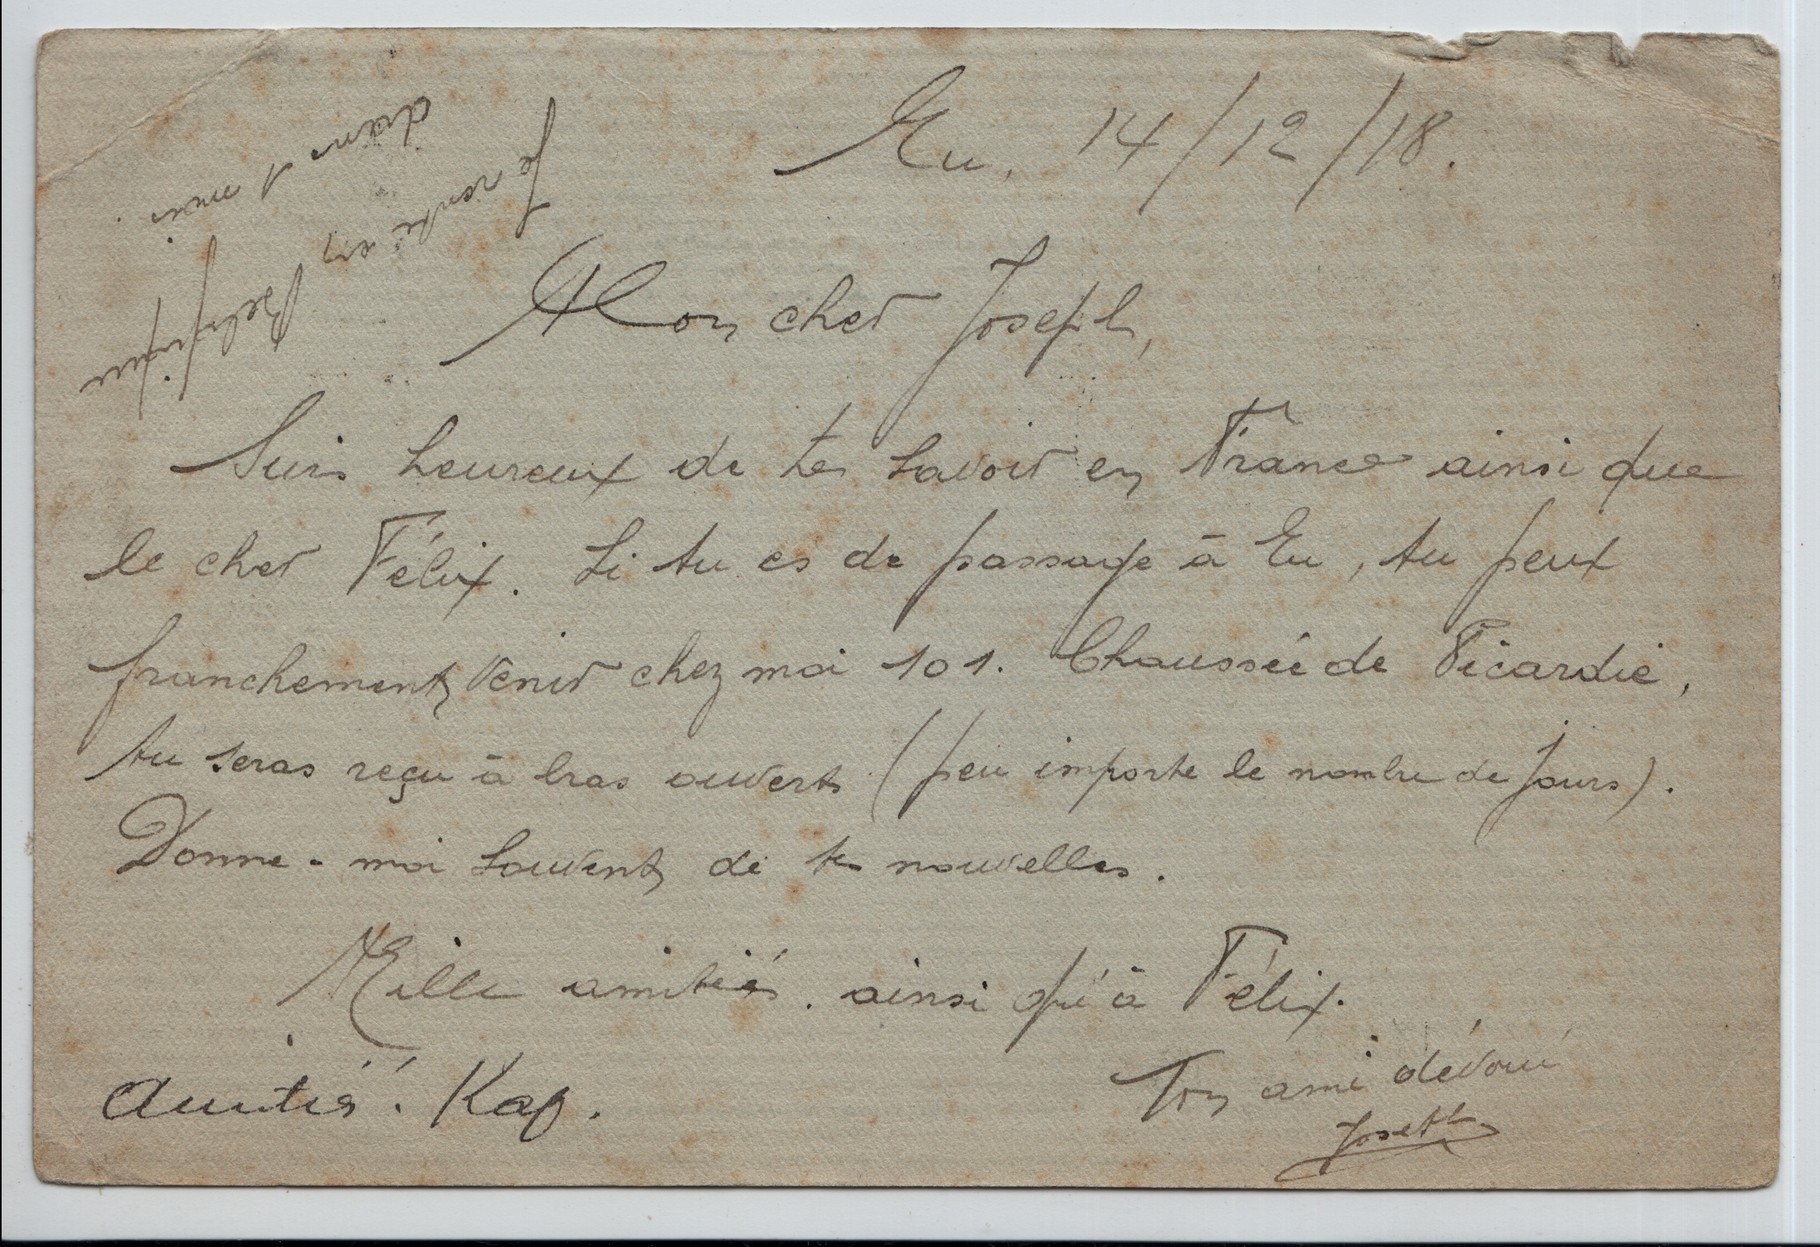 Eu, 14/12/18.
Je rentre en
Belgique
dans 1 mois.
Mon cher Joseph,
Suis heureux de te savoir en France ainsi que
le cher Félix. Si tu es de passage à Eu, tu peux
franchement venir chez moi 101. Chaussée de Picardie,
tu seras reçu à bras ouverts (peu importe le nombre de jours).
Donne-moi souvent de tes nouvelles.
Mille amitiés. ainsi qu'à Félix.
Ton ami dévoué
Amitiés. Kap.